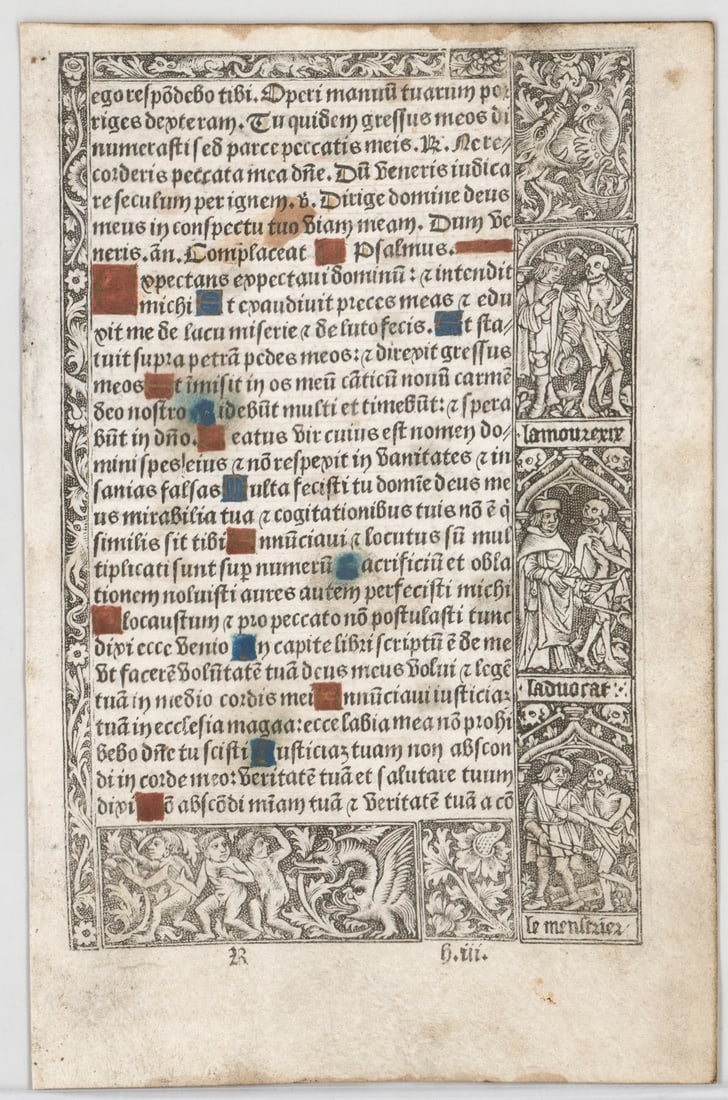 ego respõdebo tibi. Operi manuũ tuarum por
riges dexteram. Tu quidem gressus meos di
numerasti sed parce peccatis meis. R. Ne re⸗
corderis peccata mea dñe. Dũ veneris iudica
re seculum per ignem. v. Dirige domine deus
meus in conspectu tuo viam meam. Dum ve
neris. añ. Complaceat Psalmus.
Expectans expectaui dominũ: ⁊ intendit
michi Et exaudiuit preces meas ⁊ edu
xit me de lacu miserie ⁊ de luto fecis. Et sta⸗
tuit supra petrã pedes meos: ⁊ direxit gressus
meos Et ĩmisit in os meũ cãticũ nouũ carmẽ
deo nostro Videbũt multi et timebũt: ⁊ spera
bũt in dño. Beatus vir cuius est nomen do⸗
mini spes eius ⁊ nõ respexit in vanitates ⁊ in
sanias falsas Multa fecisti tu domĩe deus me
us mirabilia tua ⁊ cogitationibus tuis nõ ẽ q̇
similis sit tibi Annũciaui ⁊ locutus sũ mul
tiplicati sunt suꝑ numerũ Sacrificiũ et obla
tionem noluisti aures autem perfecisti michi
Holocaustum ⁊ pro peccato nõ postulasti tunc
dixi ecce venio In capite libri scriptũ ẽ de me
vt facerẽ volũtatẽ tuã deus meus volui ⁊ legẽ
tuã in medio cordis mei Annũciaui iusticiaꝫ
tuã in ecclesia magna: ecce labia mea nõ prohi
bebo dñe tu scisti Iusticiaꝫ tuam non abscon
di in corde meo: veritatẽ tuã et salutare tuum
dixi Nõ abscõdi mĩam tuã ⁊ veritatẽ tuã a cõ
lamourexix
laduocat
le menstrier
R h.iii.